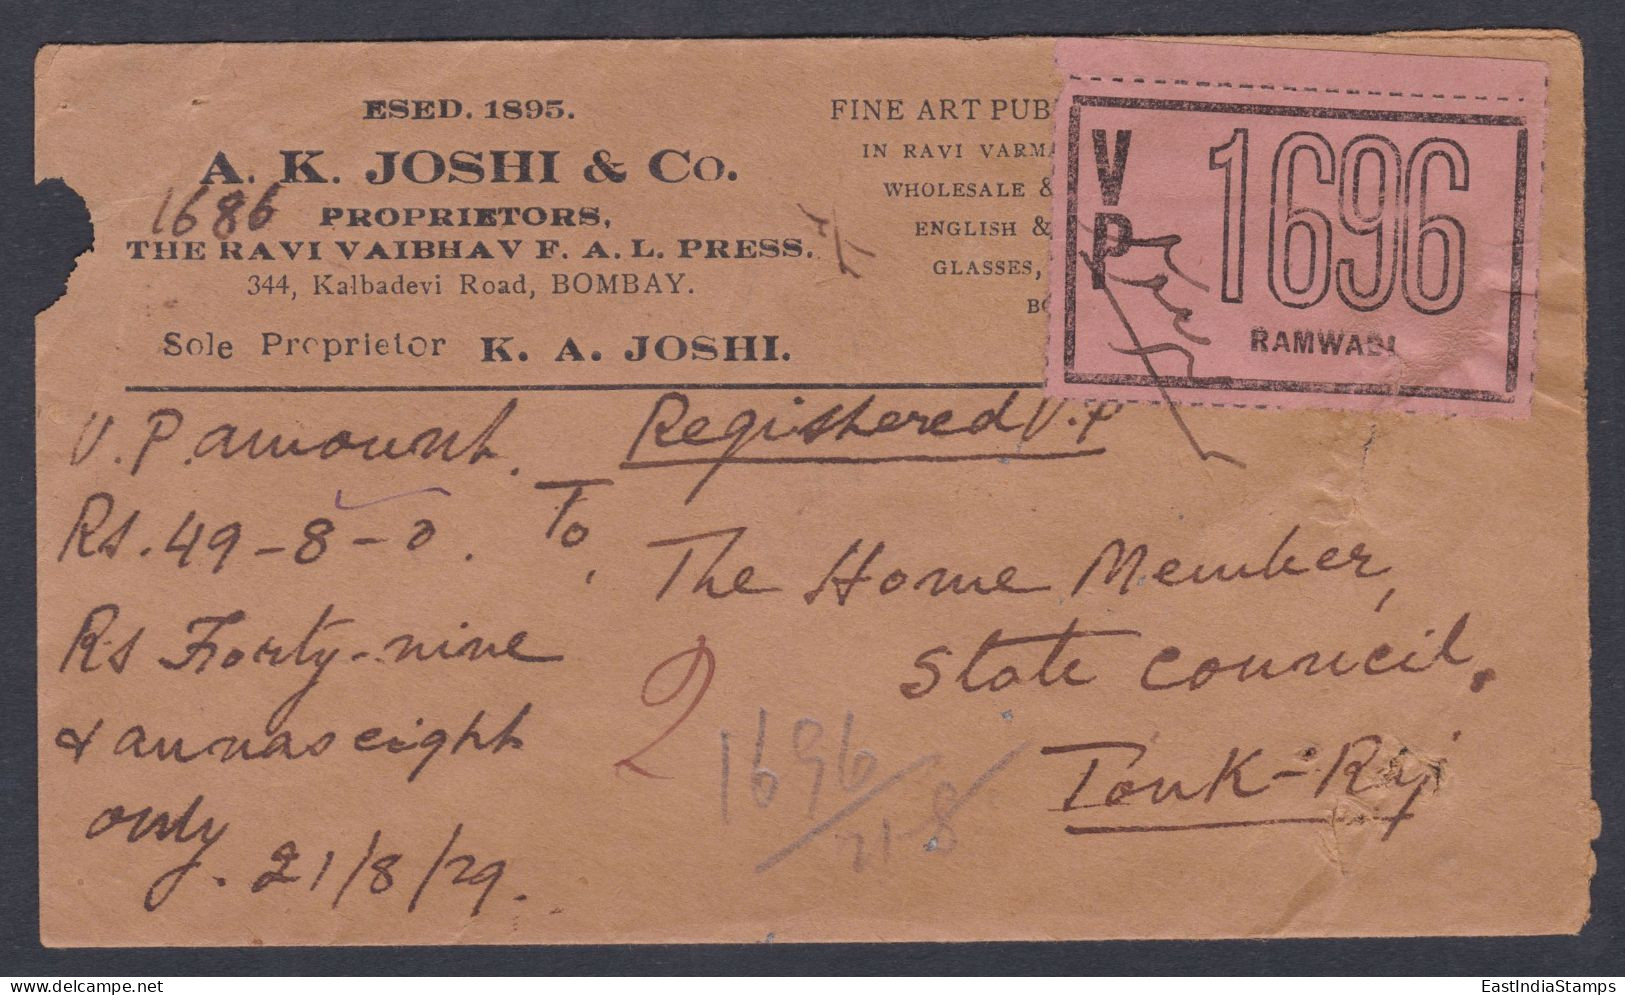 ESED. 1895.
A. K. JOSHI & Co.
1686
PROPRIETORS,
THE RAVI VAIBHAV F. A. L. PRESS.
344, Kalbadevi Road, BOMBAY.
Sole Proprietor K. A. JOSHI.
FINE ART PUB
IN RAVI VARMA
WHOLESALE &
ENGLISH &
GLASSES,
BO
VP 1696
RAMWADI
V.P. amount.
Rs. 49-8-0.
Rs Forty-nine
& annas eight
only.
21/8/29.
Registered V.P
To,
The Home Member,
State Council,
Tonk-Raj
2
1696
21-8
EastIndiaStamps
delcampe.net